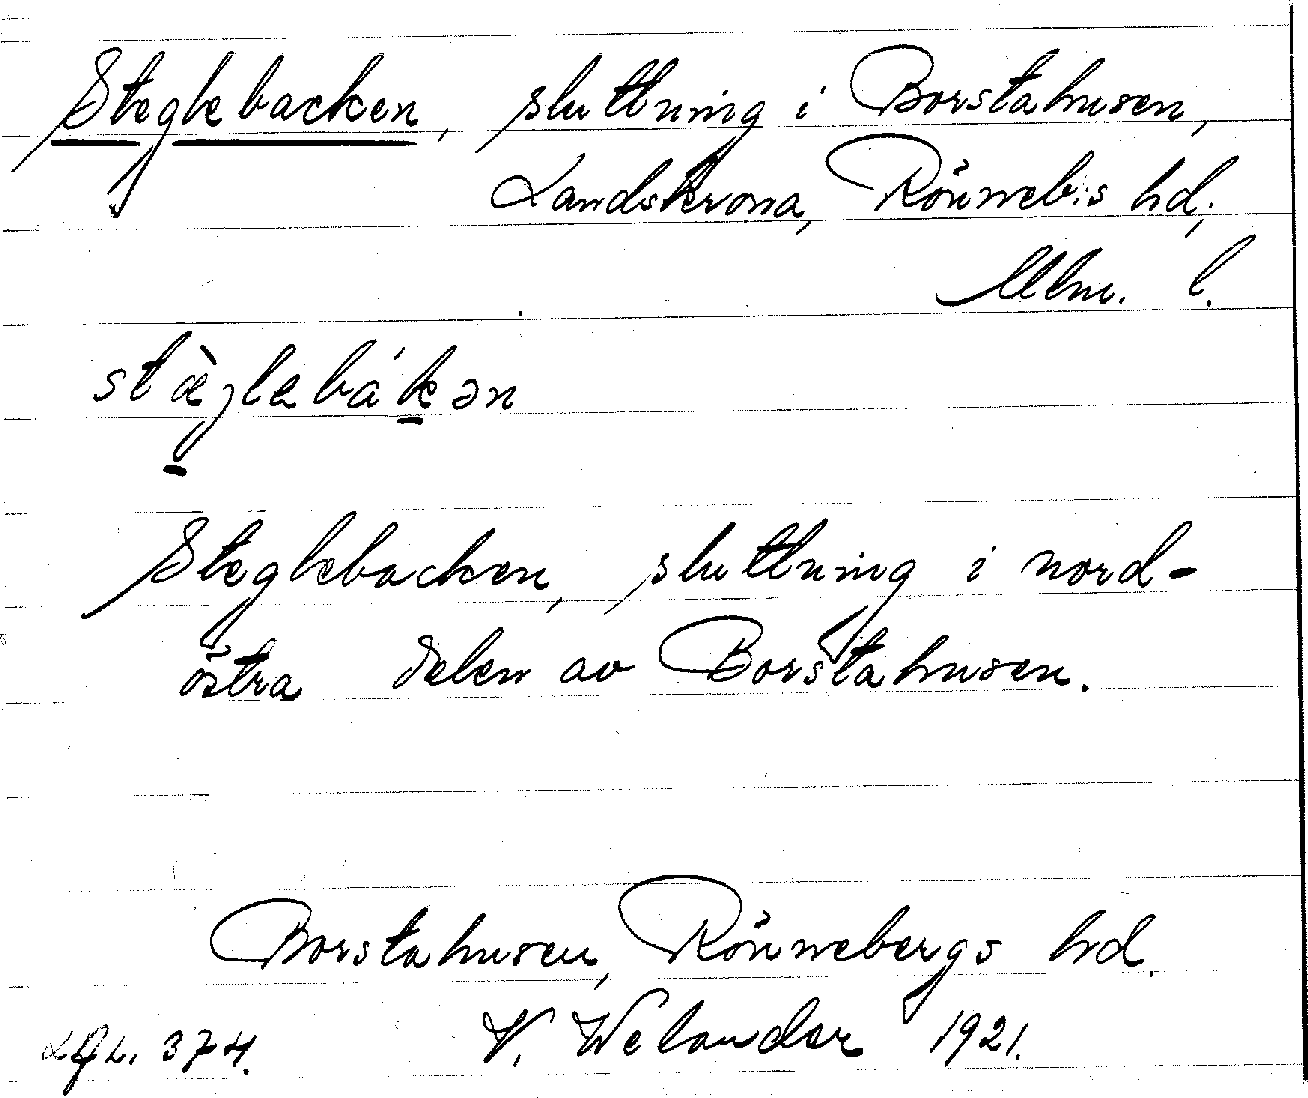 Steglebacken, sluttning i Borstahusen,
Landskrona, Rönneb:s hd,
Mlm. l.
stæ̀glebákən
Steglebacken, sluttning i nord-
östra delen av Borstahusen.
Borstahusen, Rönnebergs hd.
V. Welander 1921.
374.